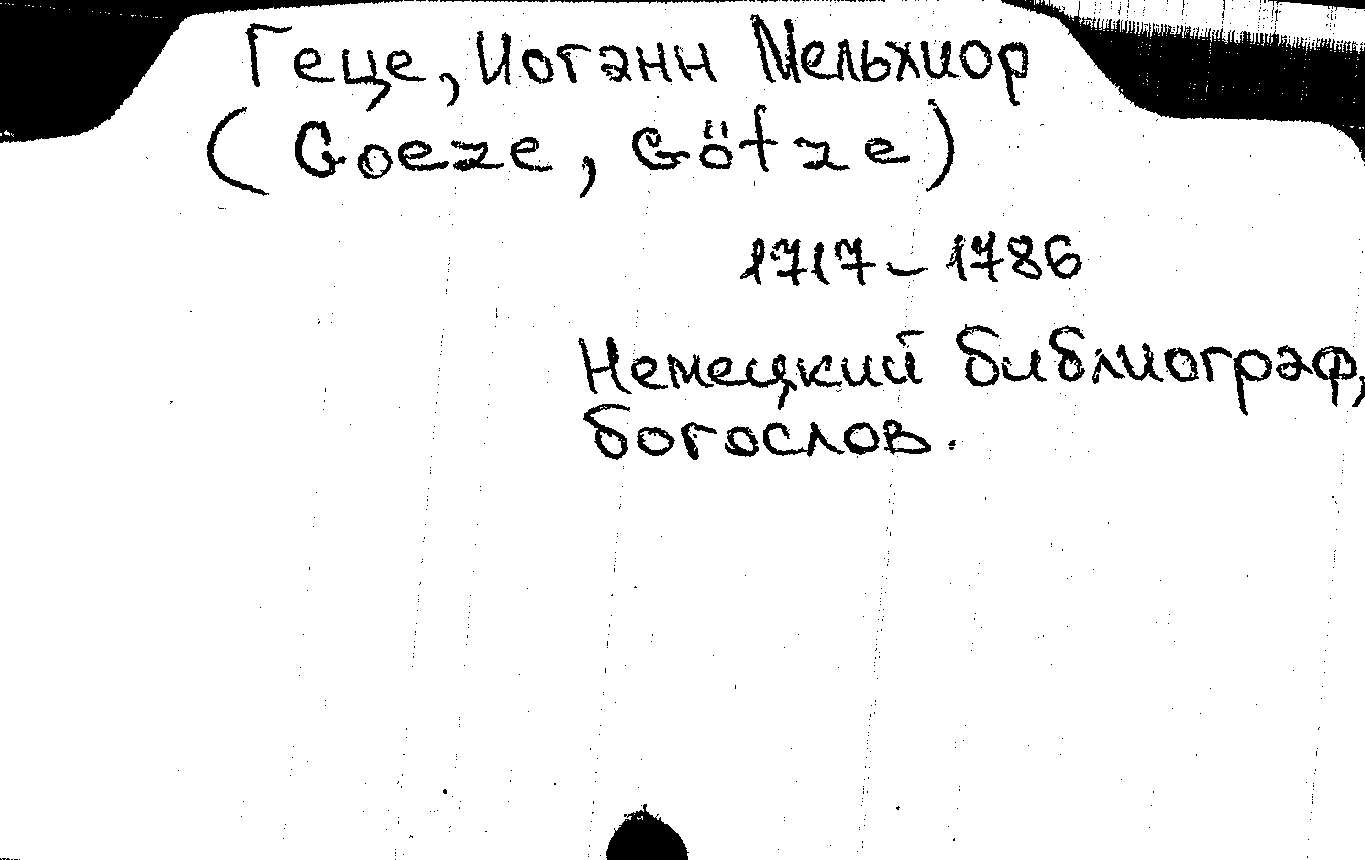 Геце, Иоганн Мельхиор
(Goeze, Götze)
1717-1786
Немецкий библиограф,
богослов.